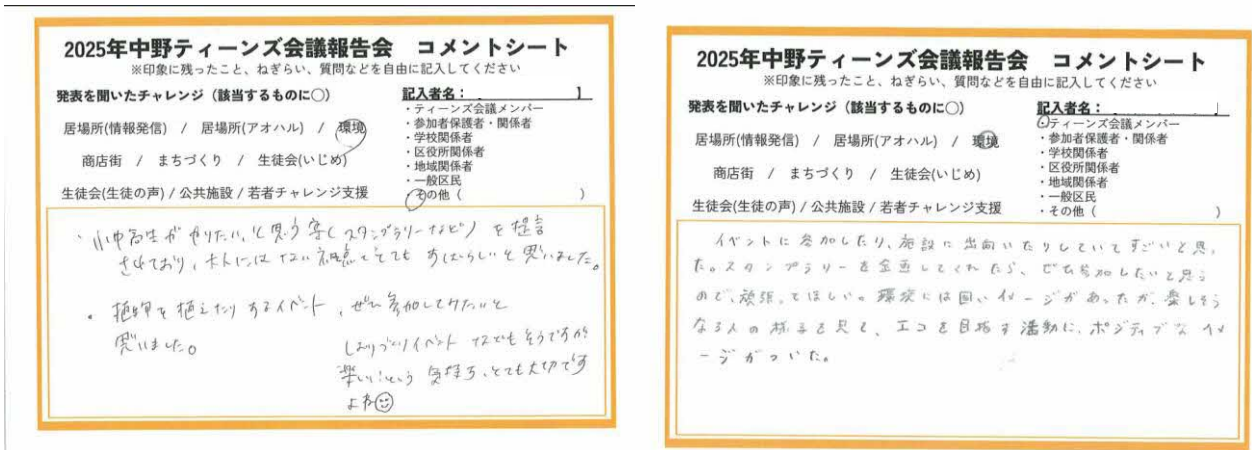 2025年中野ティーンズ会議報告会 コメントシート
※印象に残ったこと、ねぎらい、質問などを自由に記入してください
発表を聞いたチャレンジ（該当するものに○）
居場所(情報発信) / 居場所(アオハル) / 環境
商店街 / まちづくり / 生徒会(いじめ)
生徒会(生徒の声) / 公共施設 / 若者チャレンジ支援
記入者名： 】
・ティーンズ会議メンバー
・参加者保護者・関係者
・学校関係者
・区役所関係者
・地域関係者
・一般区民
・その他（ ）
・小中高生がやりたい、と思う事(スタンプラリーなど)を提言
されており、大人にはない視点でとてもすばらしいと思いました。
・植物を植えたりするイベント、ぜひ参加してみたいと
思いました。
しおりづくりイベントなどもそうですが
楽しい!という気持ち、とても大切です
よね
2025年中野ティーンズ会議報告会 コメントシート
※印象に残ったこと、ねぎらい、質問などを自由に記入してください
発表を聞いたチャレンジ（該当するものに○）
居場所(情報発信) / 居場所(アオハル) / 環境
商店街 / まちづくり / 生徒会(いじめ)
生徒会(生徒の声) / 公共施設 / 若者チャレンジ支援
記入者名：
・ティーンズ会議メンバー
・参加者保護者・関係者
・学校関係者
・区役所関係者
・地域関係者
・一般区民
・その他（ ）
イベントに参加したり、施設に出向いたりしていてすごいと思っ
た。スタンプラリーを企画してくれたら、ぜひ参加したいと思う
ので、頑張ってほしい。環境には固いイメージがあったが、楽しそう
な3人の様子を見て、エコを目指す活動に、ポジティブなイメ
ージがついた。